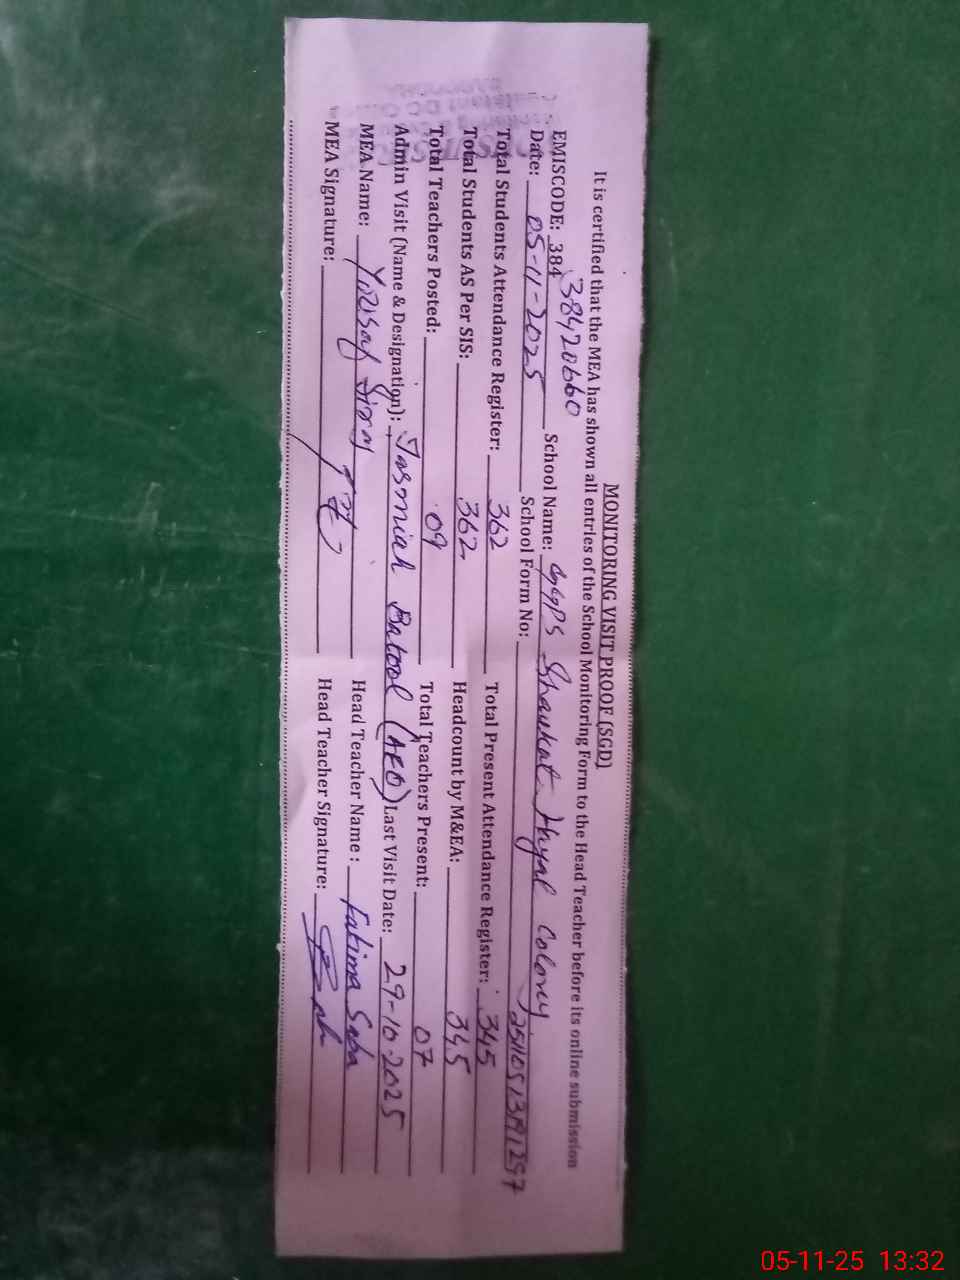 MONITORING VISIT PROOF (SGD)
It is certified that the MEA has shown all entries of the School Monitoring Form to the Head Teacher before its online submission
EMISCODE: 384 38420660 School Name: GGPS Shaukat Hayat Colony
Date: 05-11-2025 School Form No:
Total Students Attendance Register: 362 Total Present Attendance Register: 345
Total Students AS Per SIS: 362 Headcount by M&EA: 345
Total Teachers Posted: 09 Total Teachers Present: 07
Admin Visit (Name & Designation): Tasmiah Batool (AEO) Last Visit Date: 29-10-2025
MEA Name: Yousaf Head Teacher Name: Fatima Saba
MEA Signature: Head Teacher Signature:
05-11-25 13:32